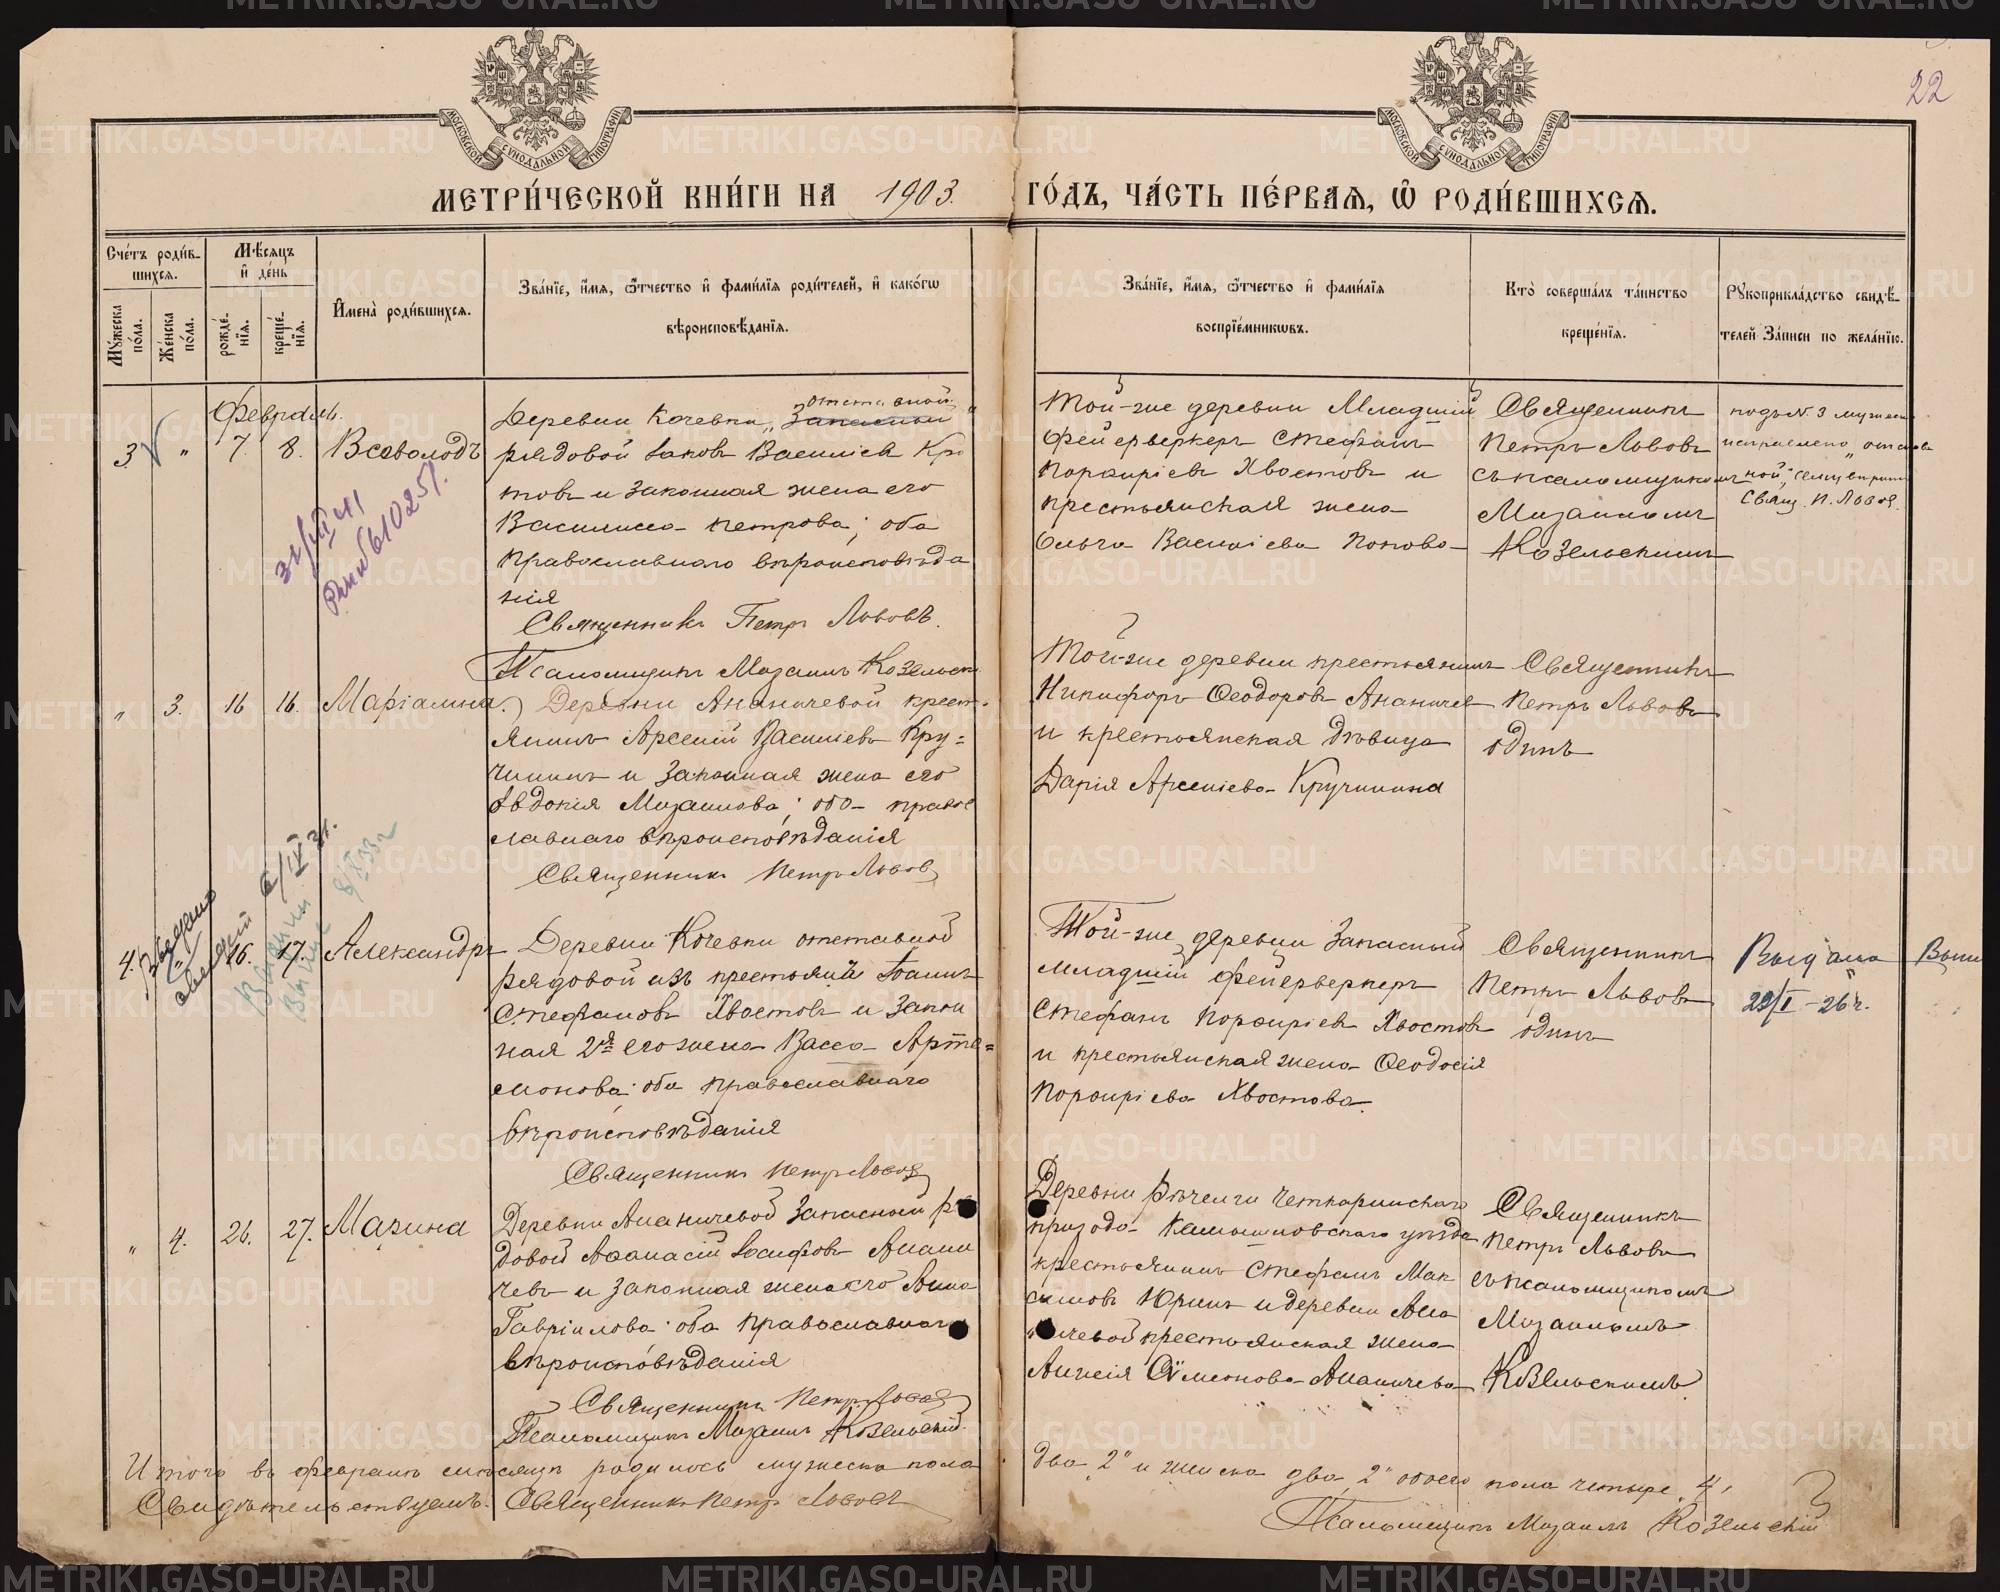 22
МОСКОВСКОЙ СѴНОДАЛЬНОЙ ТИПОГРАФІИ
МОСКОВСКОЙ СѴНОДАЛЬНОЙ ТИПОГРАФІИ
МЕТРИ́ЧЕСКОЙ КНИ́ГИ НА 1903. ГО́ДЪ, ЧА́СТЬ ПЕ́РВАѦ, Ѽ РОДИ́ВШИХСѦ.
Сче́тъ роди́в-
шихсѧ.
Мѣ́сѧцъ
и҆ де́нь
Мꙋ́жеска
по́ла.
Же́нска
по́ла.
рожде́-
нїѧ.
креще́-
нїѧ.
И҆мена̀ роди́вшихсѧ.
Зва́нїе, и҆́мѧ, ѻ҆́тчество и҆ фами́лїѧ роди́телей, и҆ како́гѡ
вѣроисповѣ́данїѧ.
Зва́нїе, и҆́мѧ, ѻ҆́тчество и҆ фами́лїѧ
воспрїе́мникѡвъ.
Кто̀ соверша́лъ та́инство
креще́нїѧ.
Рꙋкоприкла́дство свидѣ́-
телей за́писи по жела́нїю.
Февраль.
3. " 7. 8. Всеволодъ
Деревни Кочевки „Запасный отставной"
рядовой Іаковъ Василіевъ Кро
товъ и законная жена его
Василисса Петрова; оба
православнаго вѣроисповѣда
нія
Священникъ Петръ Львовъ.
Псаломщикъ Михаилъ Козельскі
Той-же деревни Младшій
фейерверкеръ Стефанъ
Порфиріевъ Хвостовъ и
крестьянская жена
Ольга Василіева Попова
Священникъ
Петръ Львовъ
съ псаломщикомъ
Михаиломъ
Козельскимъ
подъ N. 3 мужеск
исправлено „отстав
ной"
Свящ. П. Львов.
" 3. 16 16. Маріамна.
Деревни Ананичевой крест-
янинъ Арсеній Василіевъ Кру=
чининъ и законная жена его
Евдокія Михаилова; оба правос
лавнаго вѣроисповѣданія
Священникъ Петръ Львовъ
Той-же деревни крестьянинъ
Никифоръ Ѳеодоровъ Ананичев
и крестьянская дѣвица
Дарія Арсеніева Кручинина
Священникъ
Петръ Львовъ
одинъ
4. " 16. 17. Александръ
Деревни Кочевки отставной
рядовой изъ крестьянъ Іоаннъ
Стефановъ Хвостовъ и закон
ная 2я его жена Васса Арте=
монова; оба православнаго
вѣроисповѣданія
Священникъ Петръ Львовъ
Той-же деревни Запасный
младшій фейерверкеръ
Стефанъ Порфиріевъ Хвостовъ
и крестьянская жена Ѳеодосія
Порфиріева Хвостова.
Священникъ
Петръ Львовъ
одинъ
Выдана
22/I - 26 г.
" 4. 26. 27. Марина
Деревни Ананичевой Запасный ря
довой Аѳанасій Іосифовъ Анани
чевъ и законная жена его Анна
Гавріилова; оба православнаго
вѣроисповѣданія
Священникъ Петръ Львовъ
Псаломщикъ Михаилъ Козельскій.
Четкаринскаго
прихода Камышловскаго уѣзда
крестьянинъ Стефанъ Мак
симовъ Юринъ и деревни Ана
ничевой крестьянская жена
Сѵмеонова Ананичева
Священникъ
Петръ Львовъ
съ псаломщикомъ
Михаиломъ
Козельскимъ.
Итого въ февралѣ мѣсяцѣ родилось мужеска пола два „2" и женска два „2" обоего пола четыре „4"
Свидѣтельствуемъ: Священникъ Петръ Львовъ
Псаломщикъ Михаилъ Козельскій